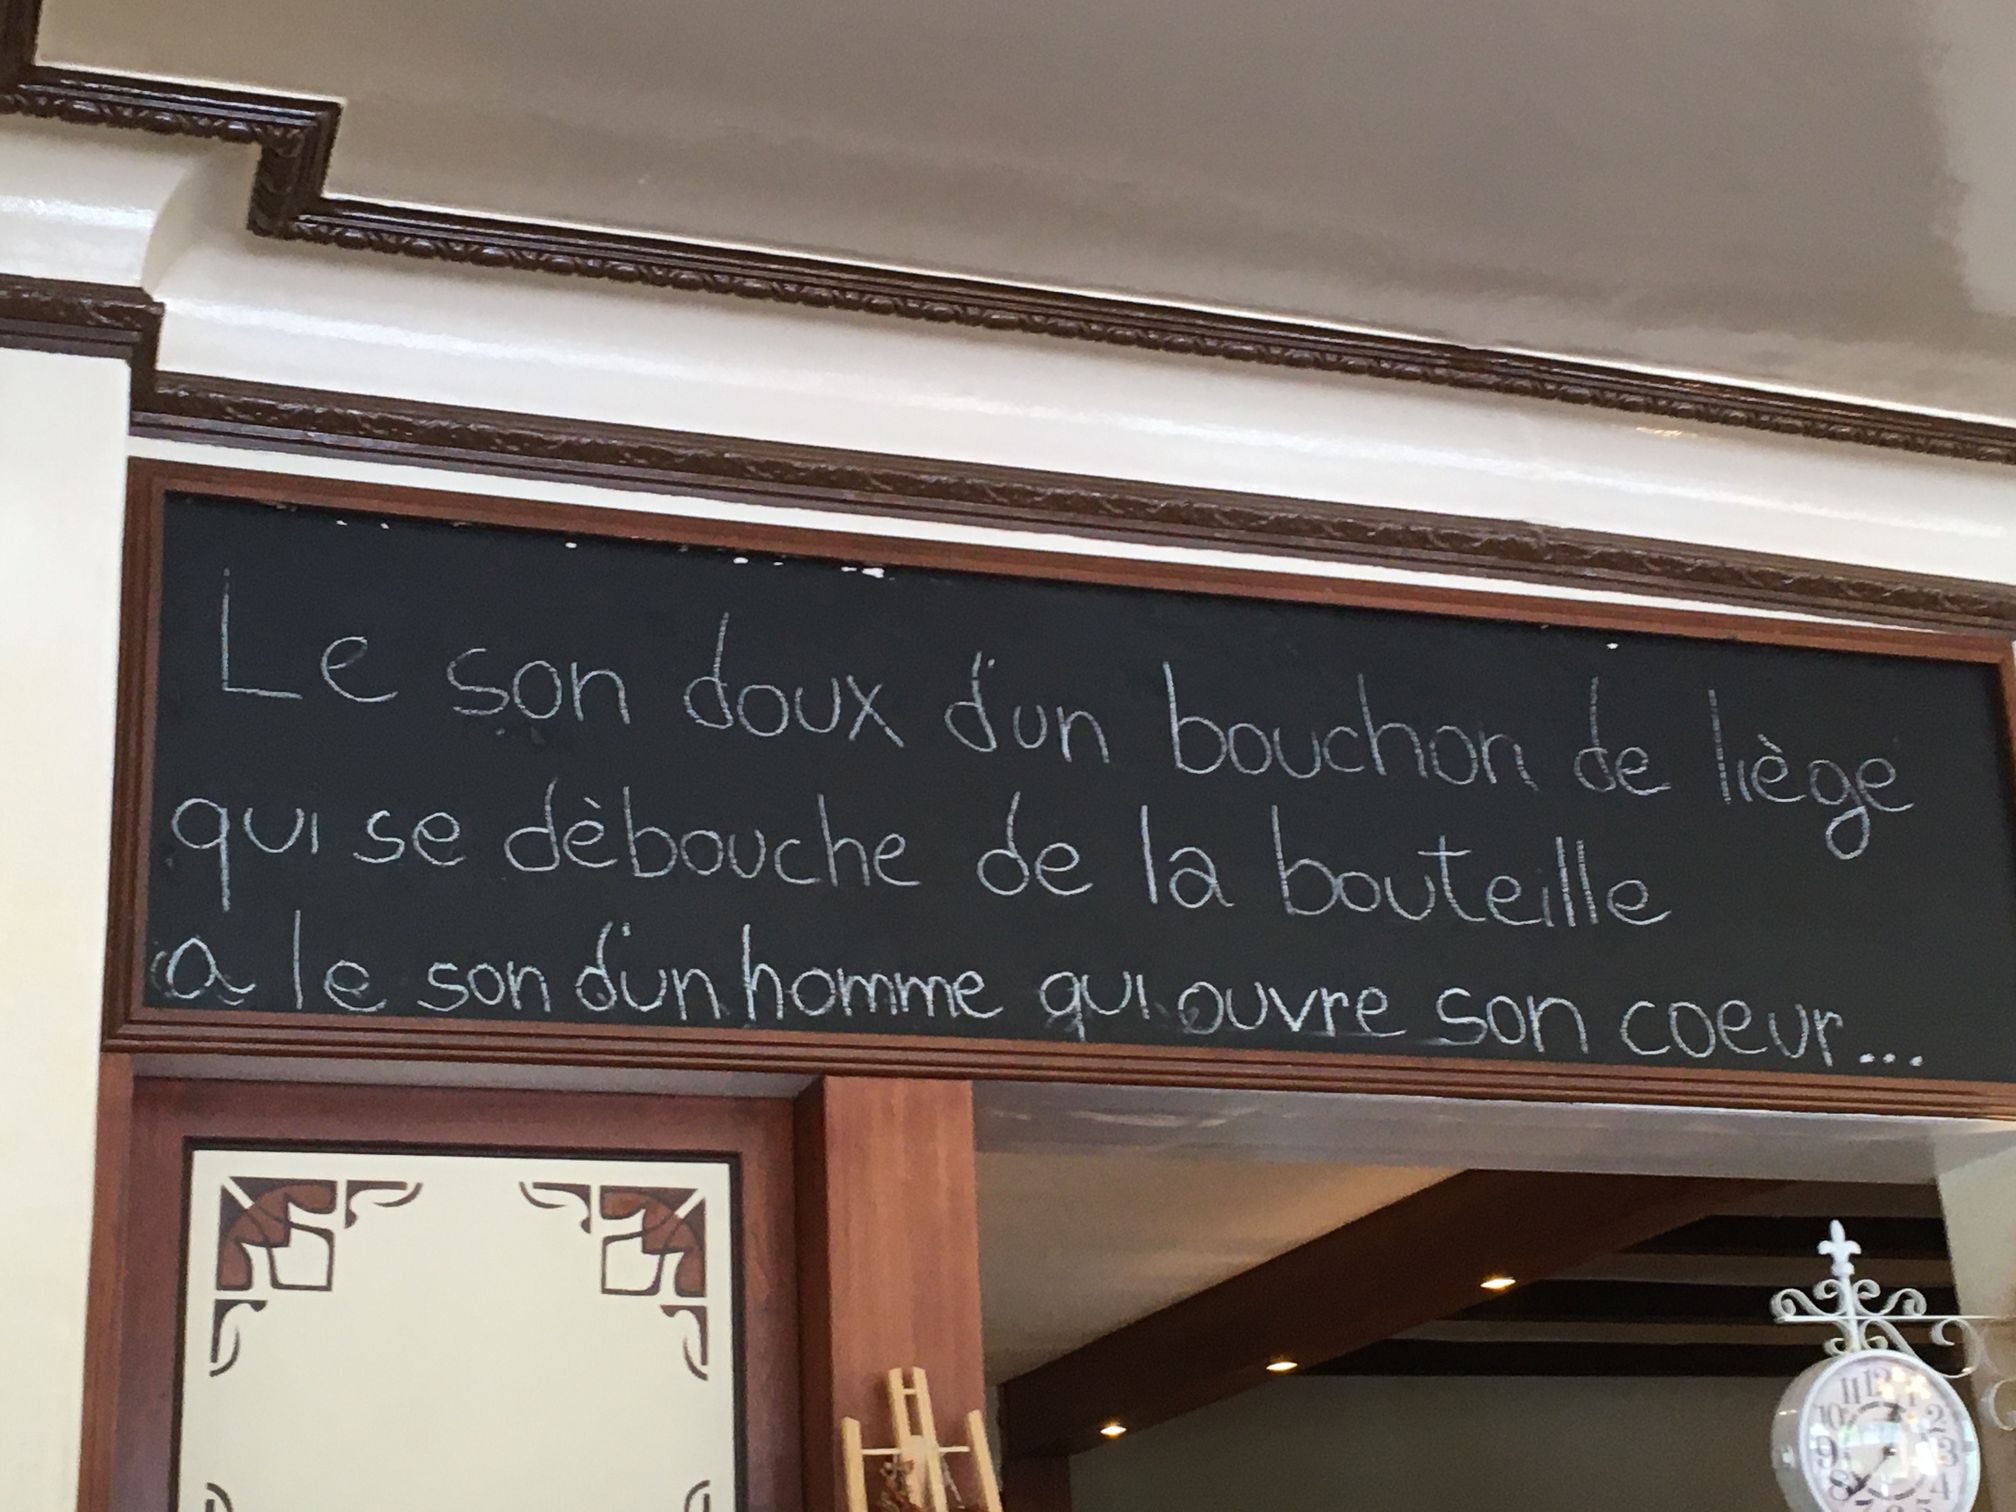 Le son doux d'un bouchon de liège
qui se dèbouche de la bouteille
a le son d'un homme qui ouvre son coeur...
11 12 1
10 2
9 3
8 4